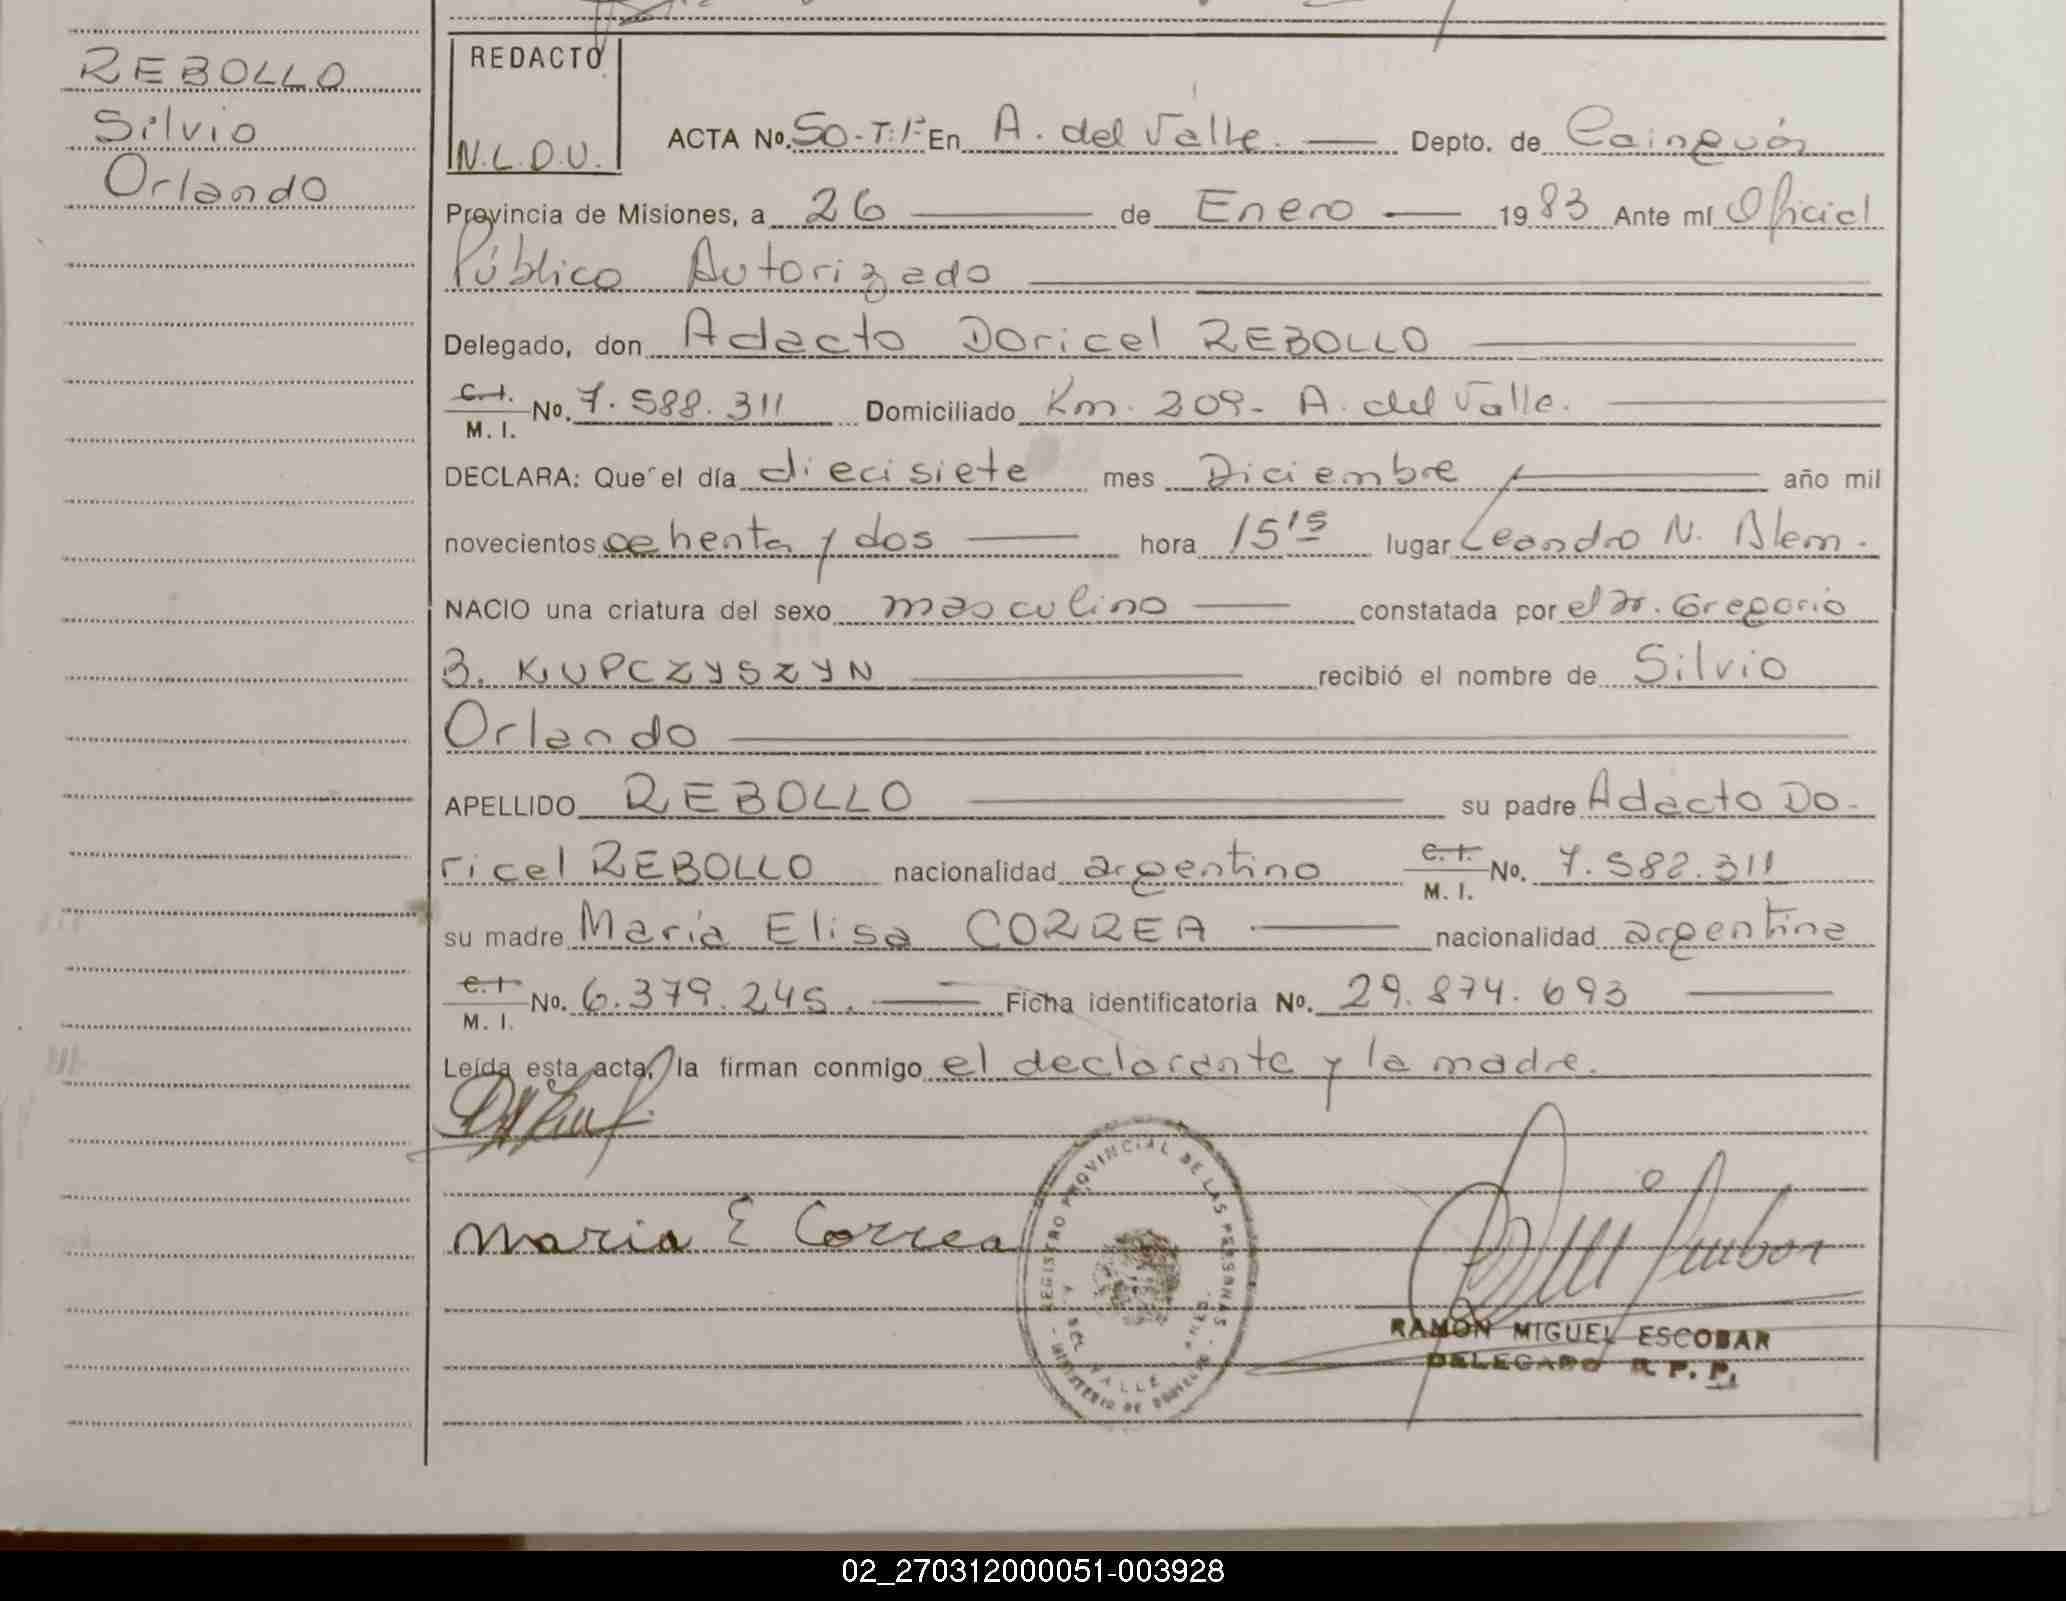 REBOLLO
Silvio
Orlando
REDACTO
N.L.D.U.
ACTA No. 50-T:1º En A. del Valle. Depto. de Cainguás
Provincia de Misiones, a 26 de Enero 1983 Ante mí Oficial
Público Autorizado
Delegado, don Adacto Doricel REBOLLO
C.I. M.I. No. 7.588.311 Domiciliado Km. 209- A. del Valle.
DECLARA: Que el día diecisiete mes Diciembre año mil
novecientos ochenta y dos hora 15 15 lugar Leandro N. Alem.
NACIO una criatura del sexo masculino constatada por el Dr. Gregorio
B. KUPCZYSZYN recibió el nombre de Silvio
Orlando
APELLIDO REBOLLO su padre Adacto Do-
ricel REBOLLO nacionalidad argentino C.I. M.I. No. 7.588.311
su madre María Elisa CORREA nacionalidad argentina
C.I. M.I. No. 6.379.245. Ficha identificatoria No. 29.874.693
Leída esta acta, la firman conmigo el declarante y la madre.
Maria E Correa
REGISTRO PROVINCIAL DE LAS PERSONAS
DEL VALLE
MINISTERIO DE
RAMON MIGUEL ESCOBAR
DELEGADO R.P.P.
02_270312000051-003928